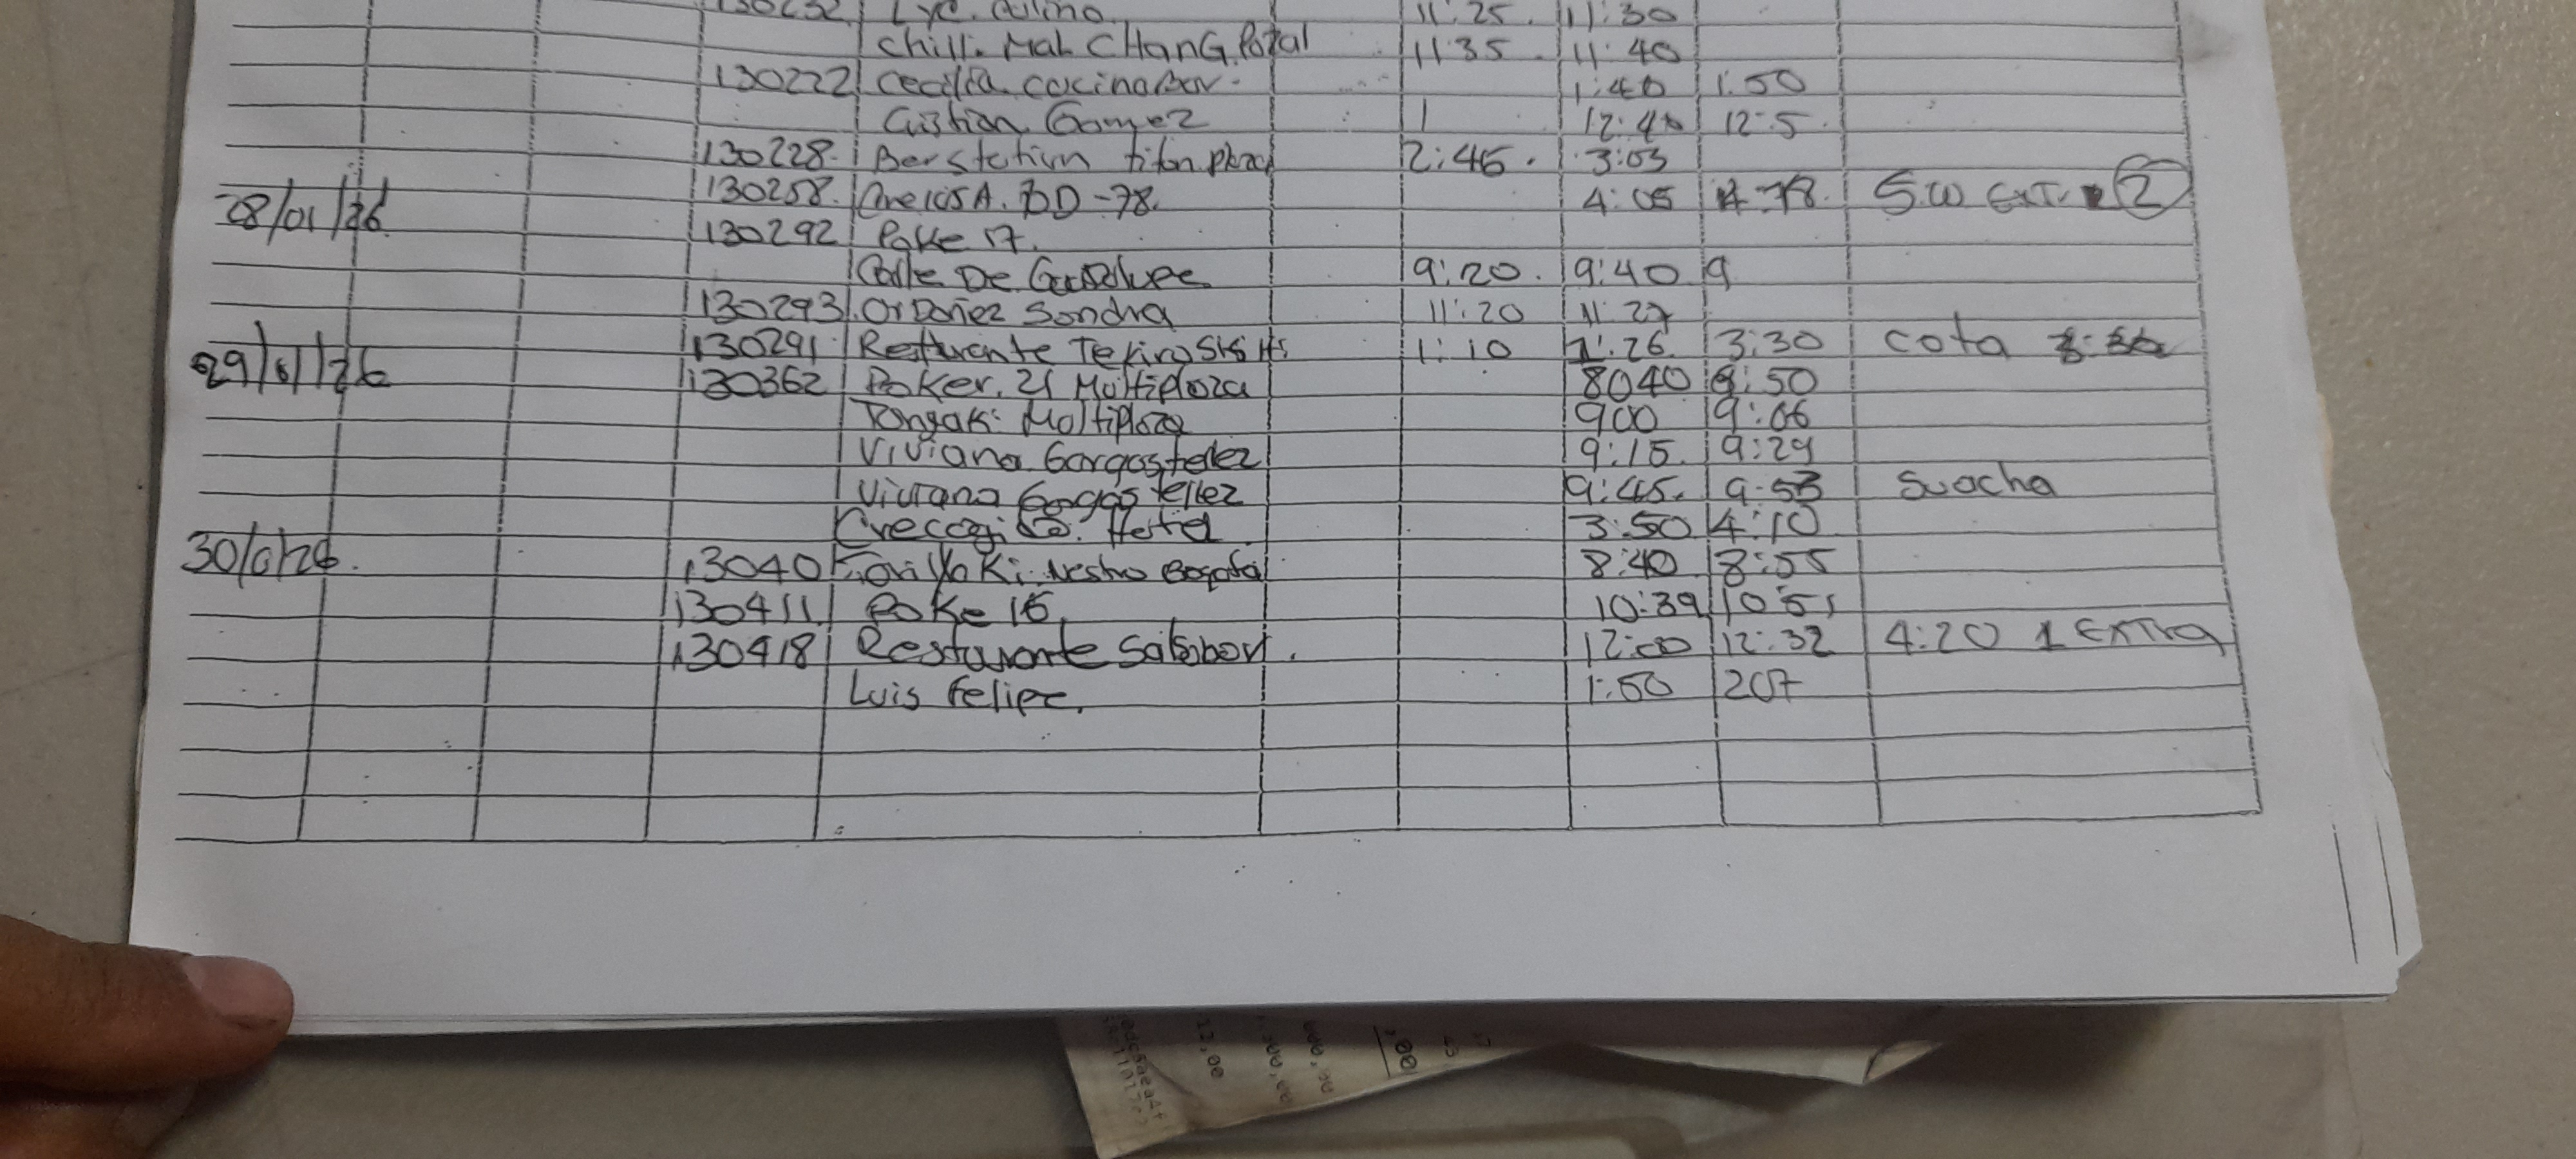 130232 Lyc. Culino 11:25. 11:30
chilli. Mah CHanG. Potal 11:35. 11:40
130222 Cecilia cocina Bar. 1:40 1:50
Cristian Gomez 1 12:40 12:5.
130228. Berstation titan plaza 2:45. 3:03
130258. OneiosA. BD -78. 4:05 4:18. 5:00 EXTr 2
28/01/26
130292 Poke 17.
Calle De Guadalupe 9:20. 9:40 9
130293. Ordoñez Sondra 11:20 11:27
130291. Resturante Tekiro 1:10 1:26 3:30 cota
29/01/26 130362 Poker. 21 Multiplaza 8040 8:50
Tongaki Multiplaza 900 9:06
Viviana Gargastellez 9:15. 9:29
Viviana Gargas tellez 9:45. 9:53 Suacha
3:50 4:10
30/01/26. 13040 Nestro Bogota 8:40 8:55
130411 Poke 15. 10:39 10 51
130418 Restaurante Saltobori. 12:00 12:32 4:20 1 EXTra
Luis Felipe. 1:50 207